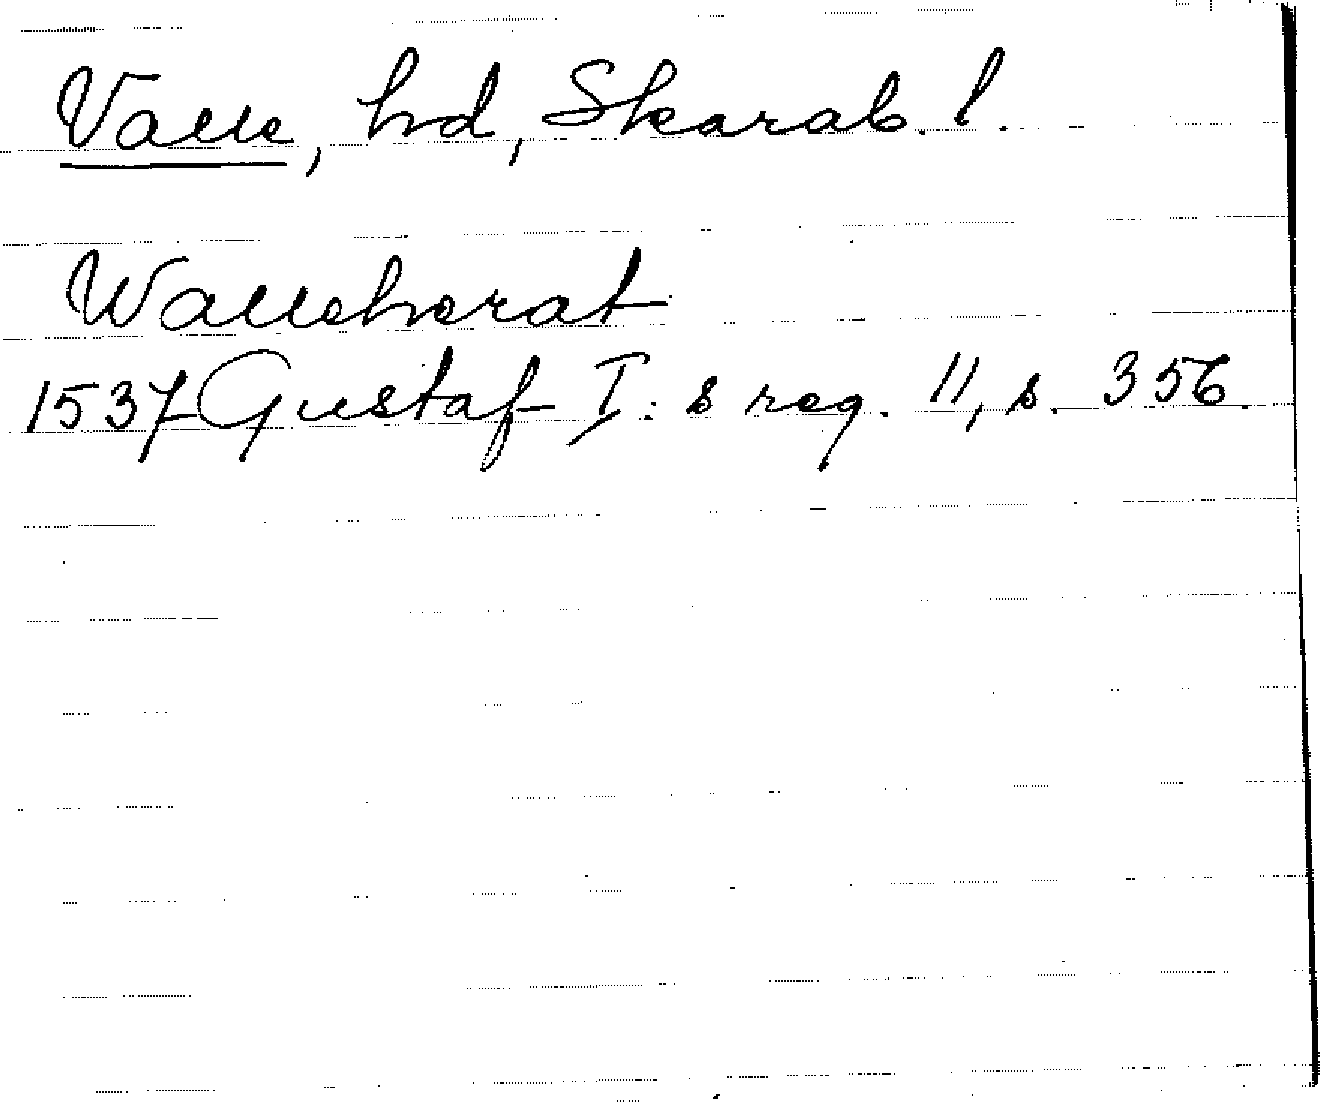 Valle, hd, Skarab. l.
Walleherat
1537 Gustaf I:s reg. 11, s. 356.